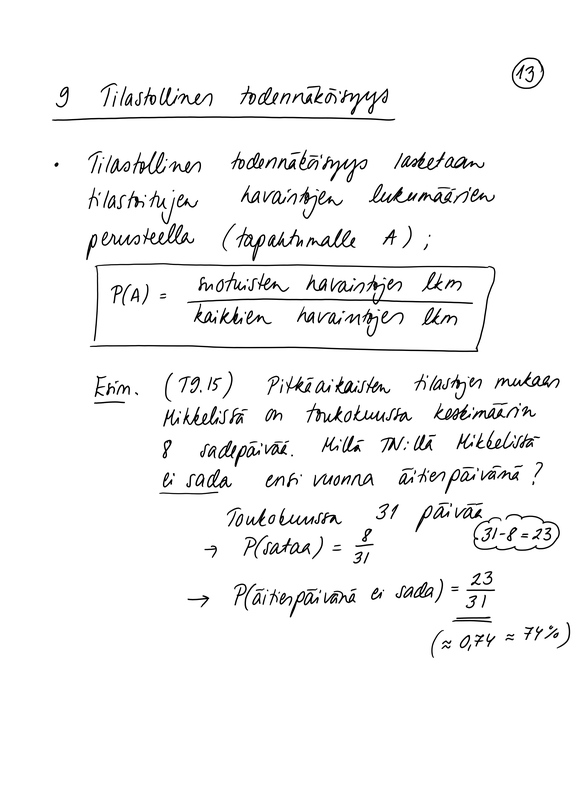 13
9 Tilastollinen todennäköisyys
• Tilastollinen todennäköisyys lasketaan
tilastoitujen havaintojen lukumäärien
perusteella (tapahtumalle A);
P(A) = suotuisten havaintojen lkm / kaikkien havaintojen lkm
Esim. (T9.15) Pitkäaikaisten tilastojen mukaan
Mikkelissä on toukokuussa keskimäärin
8 sadepäivää. Millä TN:llä Mikkelissä
ei sada ensi vuonna äitienpäivänä?
Toukokuussa 31 päivää
31-8=23
→ P(sataa) = 8/31
→ P(äitienpäivänä ei sada) = 23/31
(≈ 0,74 ≈ 74%)